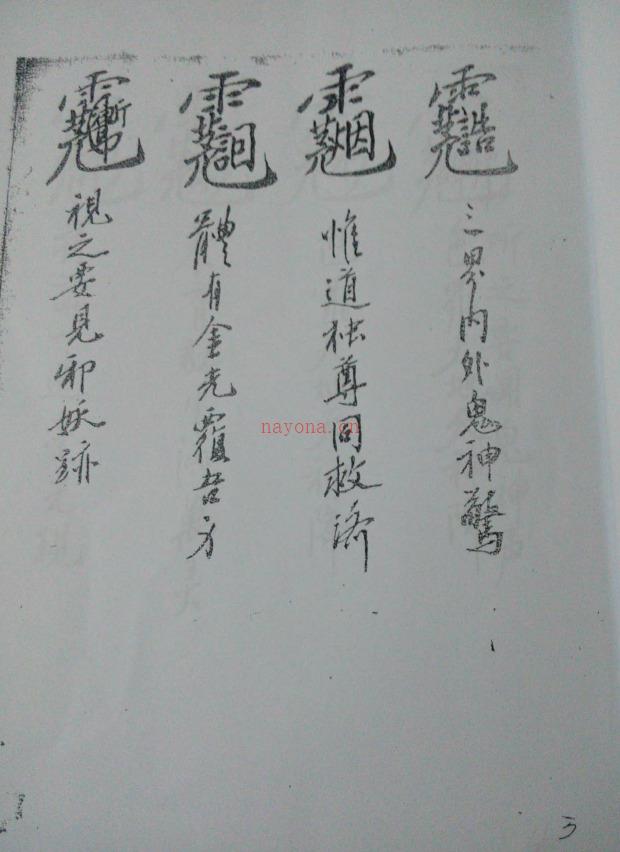 三界内外鬼神驚
惟道独尊同救济
體有金光覆吾身
視之要見邪妖跡
nayona.cn
3